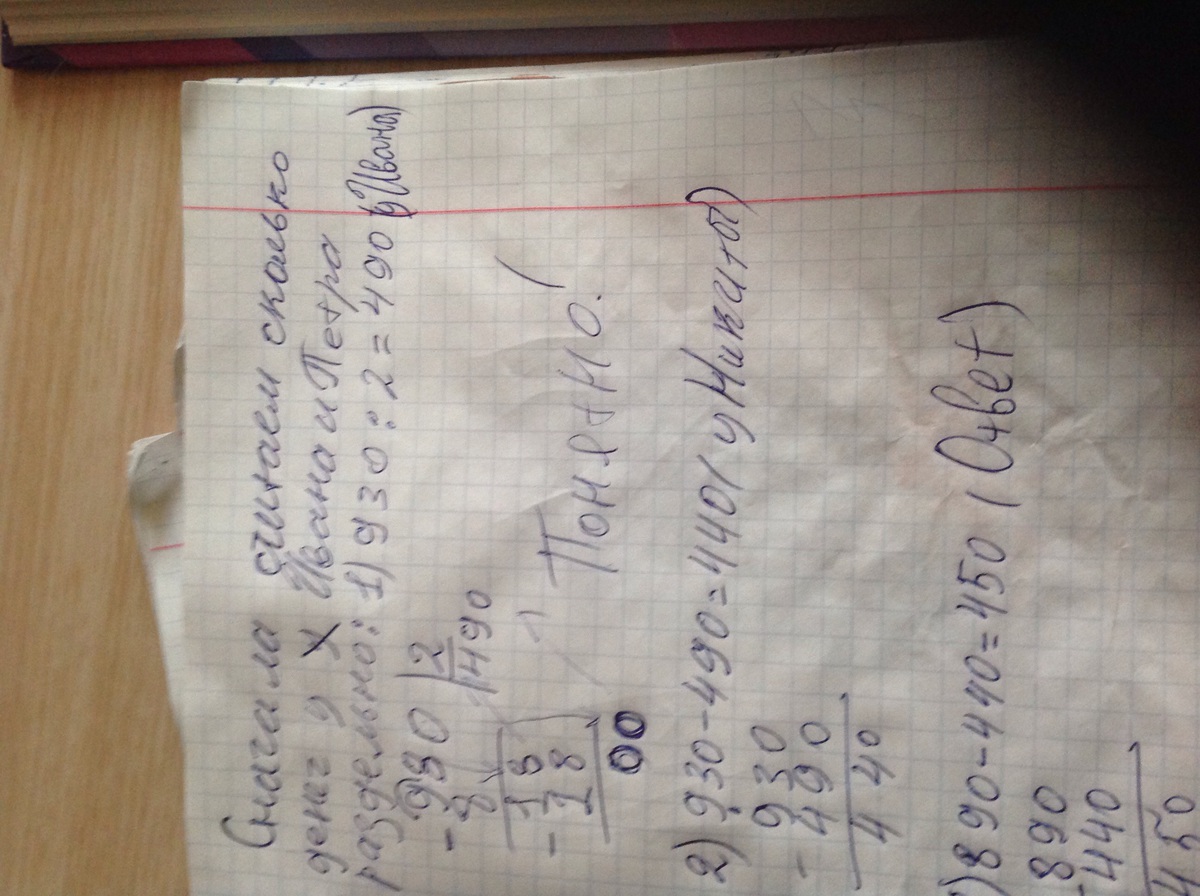 Сначала считаем сколько
денг у Х Ивана и Петра
раздельно: 1) 930:2=490 (у Ивана)
-990 | 2
8 | 490
18
-18
00
Понятно!
2) 930-490=440 (у Никиты)
930
-490
440
) 890-440=450 (Ответ)
890
440
450